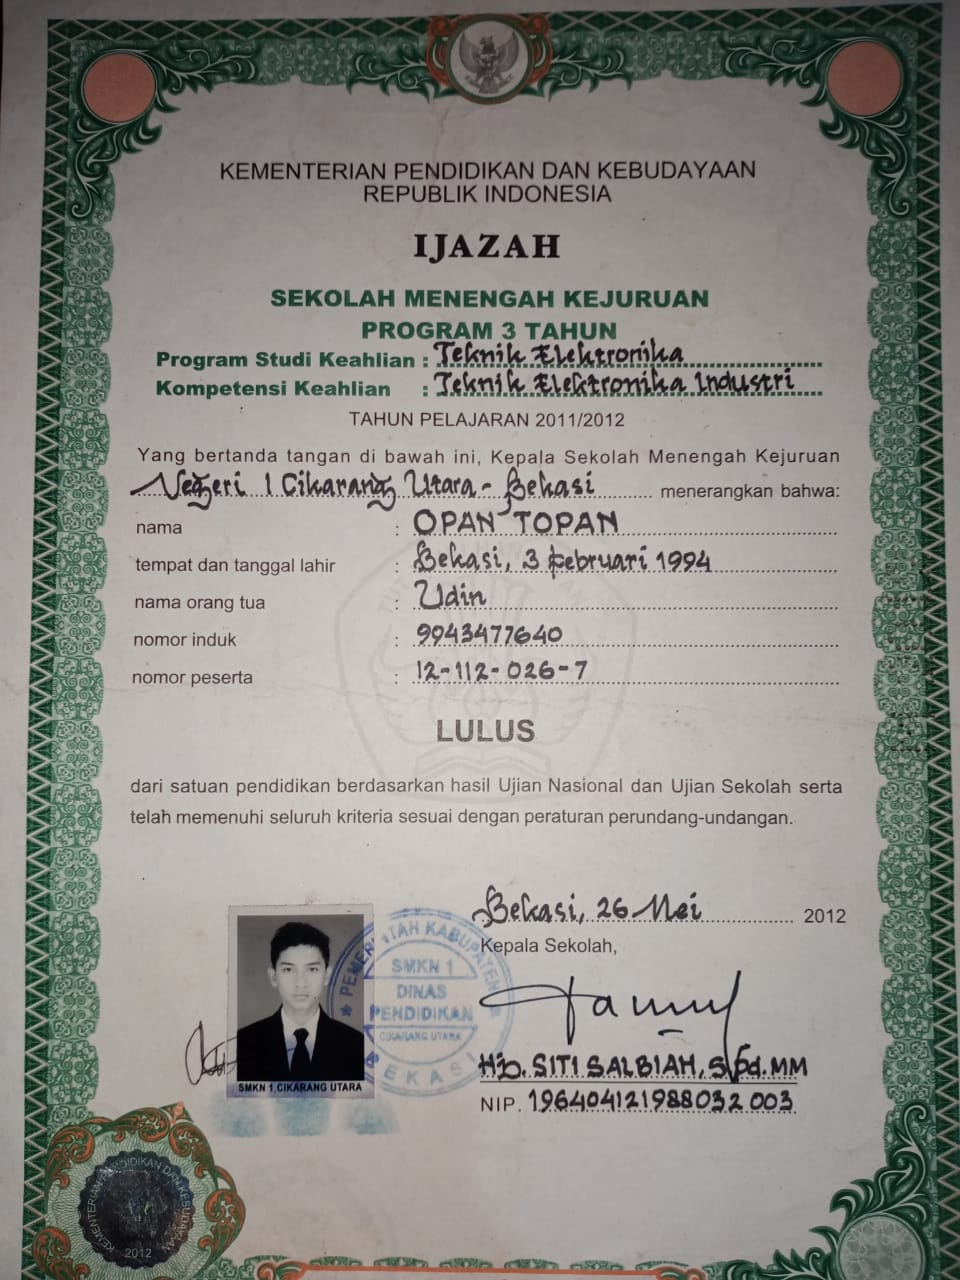 KEMENTERIAN PENDIDIKAN DAN KEBUDAYAAN
REPUBLIK INDONESIA
IJAZAH
SEKOLAH MENENGAH KEJURUAN
PROGRAM 3 TAHUN
Program Studi Keahlian : Teknik Elektronika
Kompetensi Keahlian : Teknik Elektronika Industri
TAHUN PELAJARAN 2011/2012
Yang bertanda tangan di bawah ini, Kepala Sekolah Menengah Kejuruan
Negeri 1 Cikarang Utara - Bekasi menerangkan bahwa:
nama : OPAN TOPAN
tempat dan tanggal lahir : Bekasi, 3 Februari 1994
nama orang tua : Udin
nomor induk : 9943477640
nomor peserta : 12-112-026-7
LULUS
dari satuan pendidikan berdasarkan hasil Ujian Nasional dan Ujian Sekolah serta
telah memenuhi seluruh kriteria sesuai dengan peraturan perundang-undangan.
Bekasi, 26 Mei 2012
Kepala Sekolah,
PEMERINTAH KABUPATEN
SMKN 1
DINAS
PENDIDIKAN
CIKARANG UTARA
BEKASI
SMKN 1 CIKARANG UTARA
Hj. SITI SALBIAH, S.Pd. MM
NIP. 196404121988032 003
KEMENTERIAN PENDIDIKAN DAN KEBUDAYAAN
2012